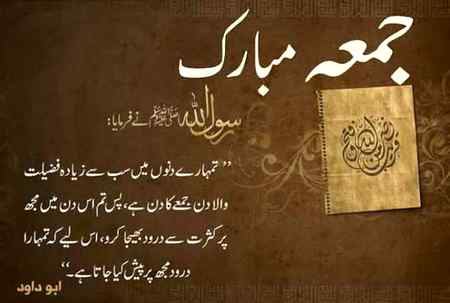 جمعہ مبارک
رسول اللہ ﷺ نے فرمایا:
”تمہارے دنوں میں سب سے زیادہ فضیلت
والا دن جمعے کا دن ہے، پس تم اس دن میں مجھ
پر کثرت سے درود بھیجا کرو، اس لیے کہ تمہارا
درود مجھ پر پیش کیا جاتا ہے۔“
ابو داود